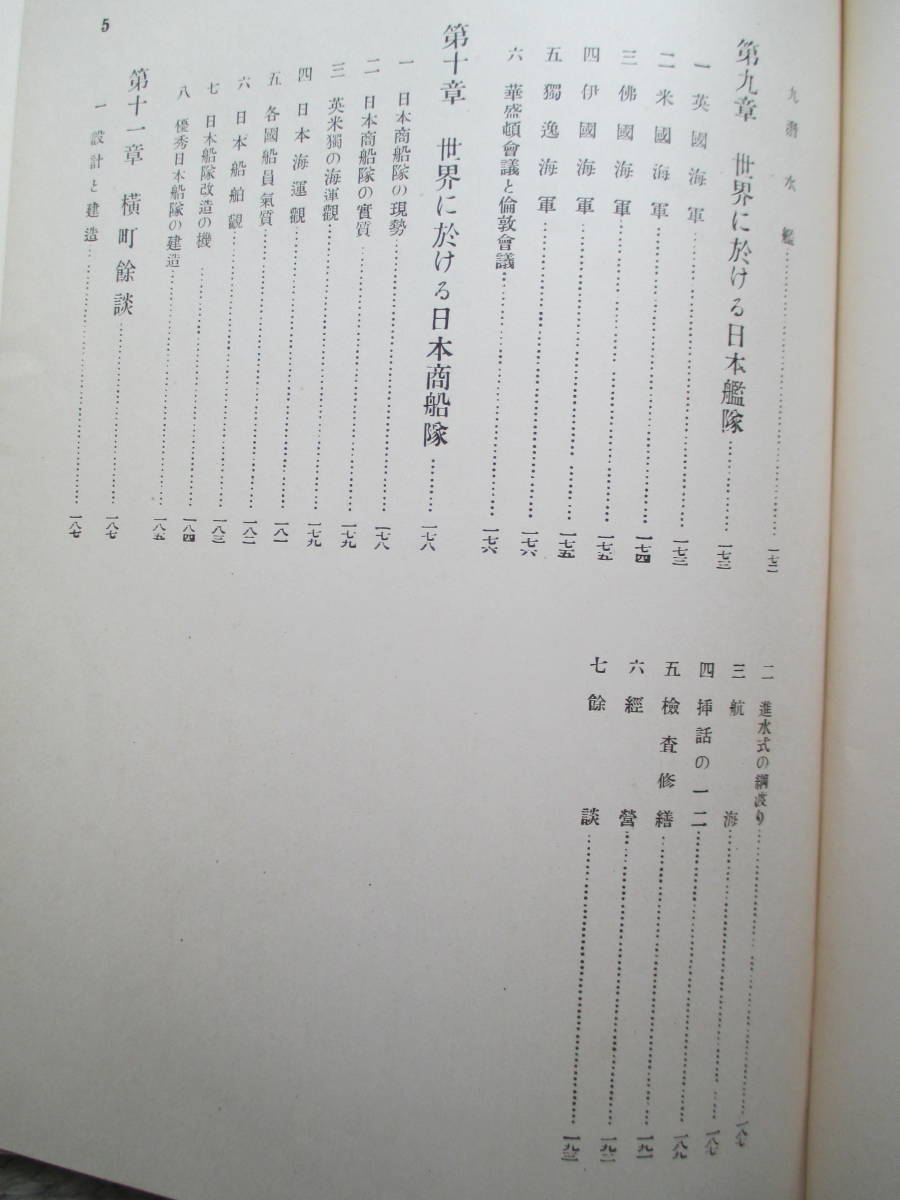 九 潛水艦 一七二
第九章 世界に於ける日本艦隊 一七三
一 英國海軍 一七三
二 米國海軍 一七四
三 佛國海軍 一七五
四 伊國海軍 一七五
五 獨逸海軍 一七六
六 華盛頓會議と倫敦會議 一七六
第十章 世界に於ける日本商船隊 一七八
一 日本商船隊の現勢 一七八
二 日本商船隊の實質 一七九
三 英米獨の海運觀 一七九
四 日本海運觀 一八一
五 各國船員氣質 一八二
六 日本船舶觀 一八三
七 日本船隊改造の機 一八四
八 優秀日本船隊の建造 一八五
第十一章 橫町餘談 一八七
一 設計と建造 一八七
二 進水式の綱渡り 一八七
三 航海 一八七
四 挿話の一二 一八九
五 檢查修繕 一九一
六 經營 一九二
七 餘談 一九三
5